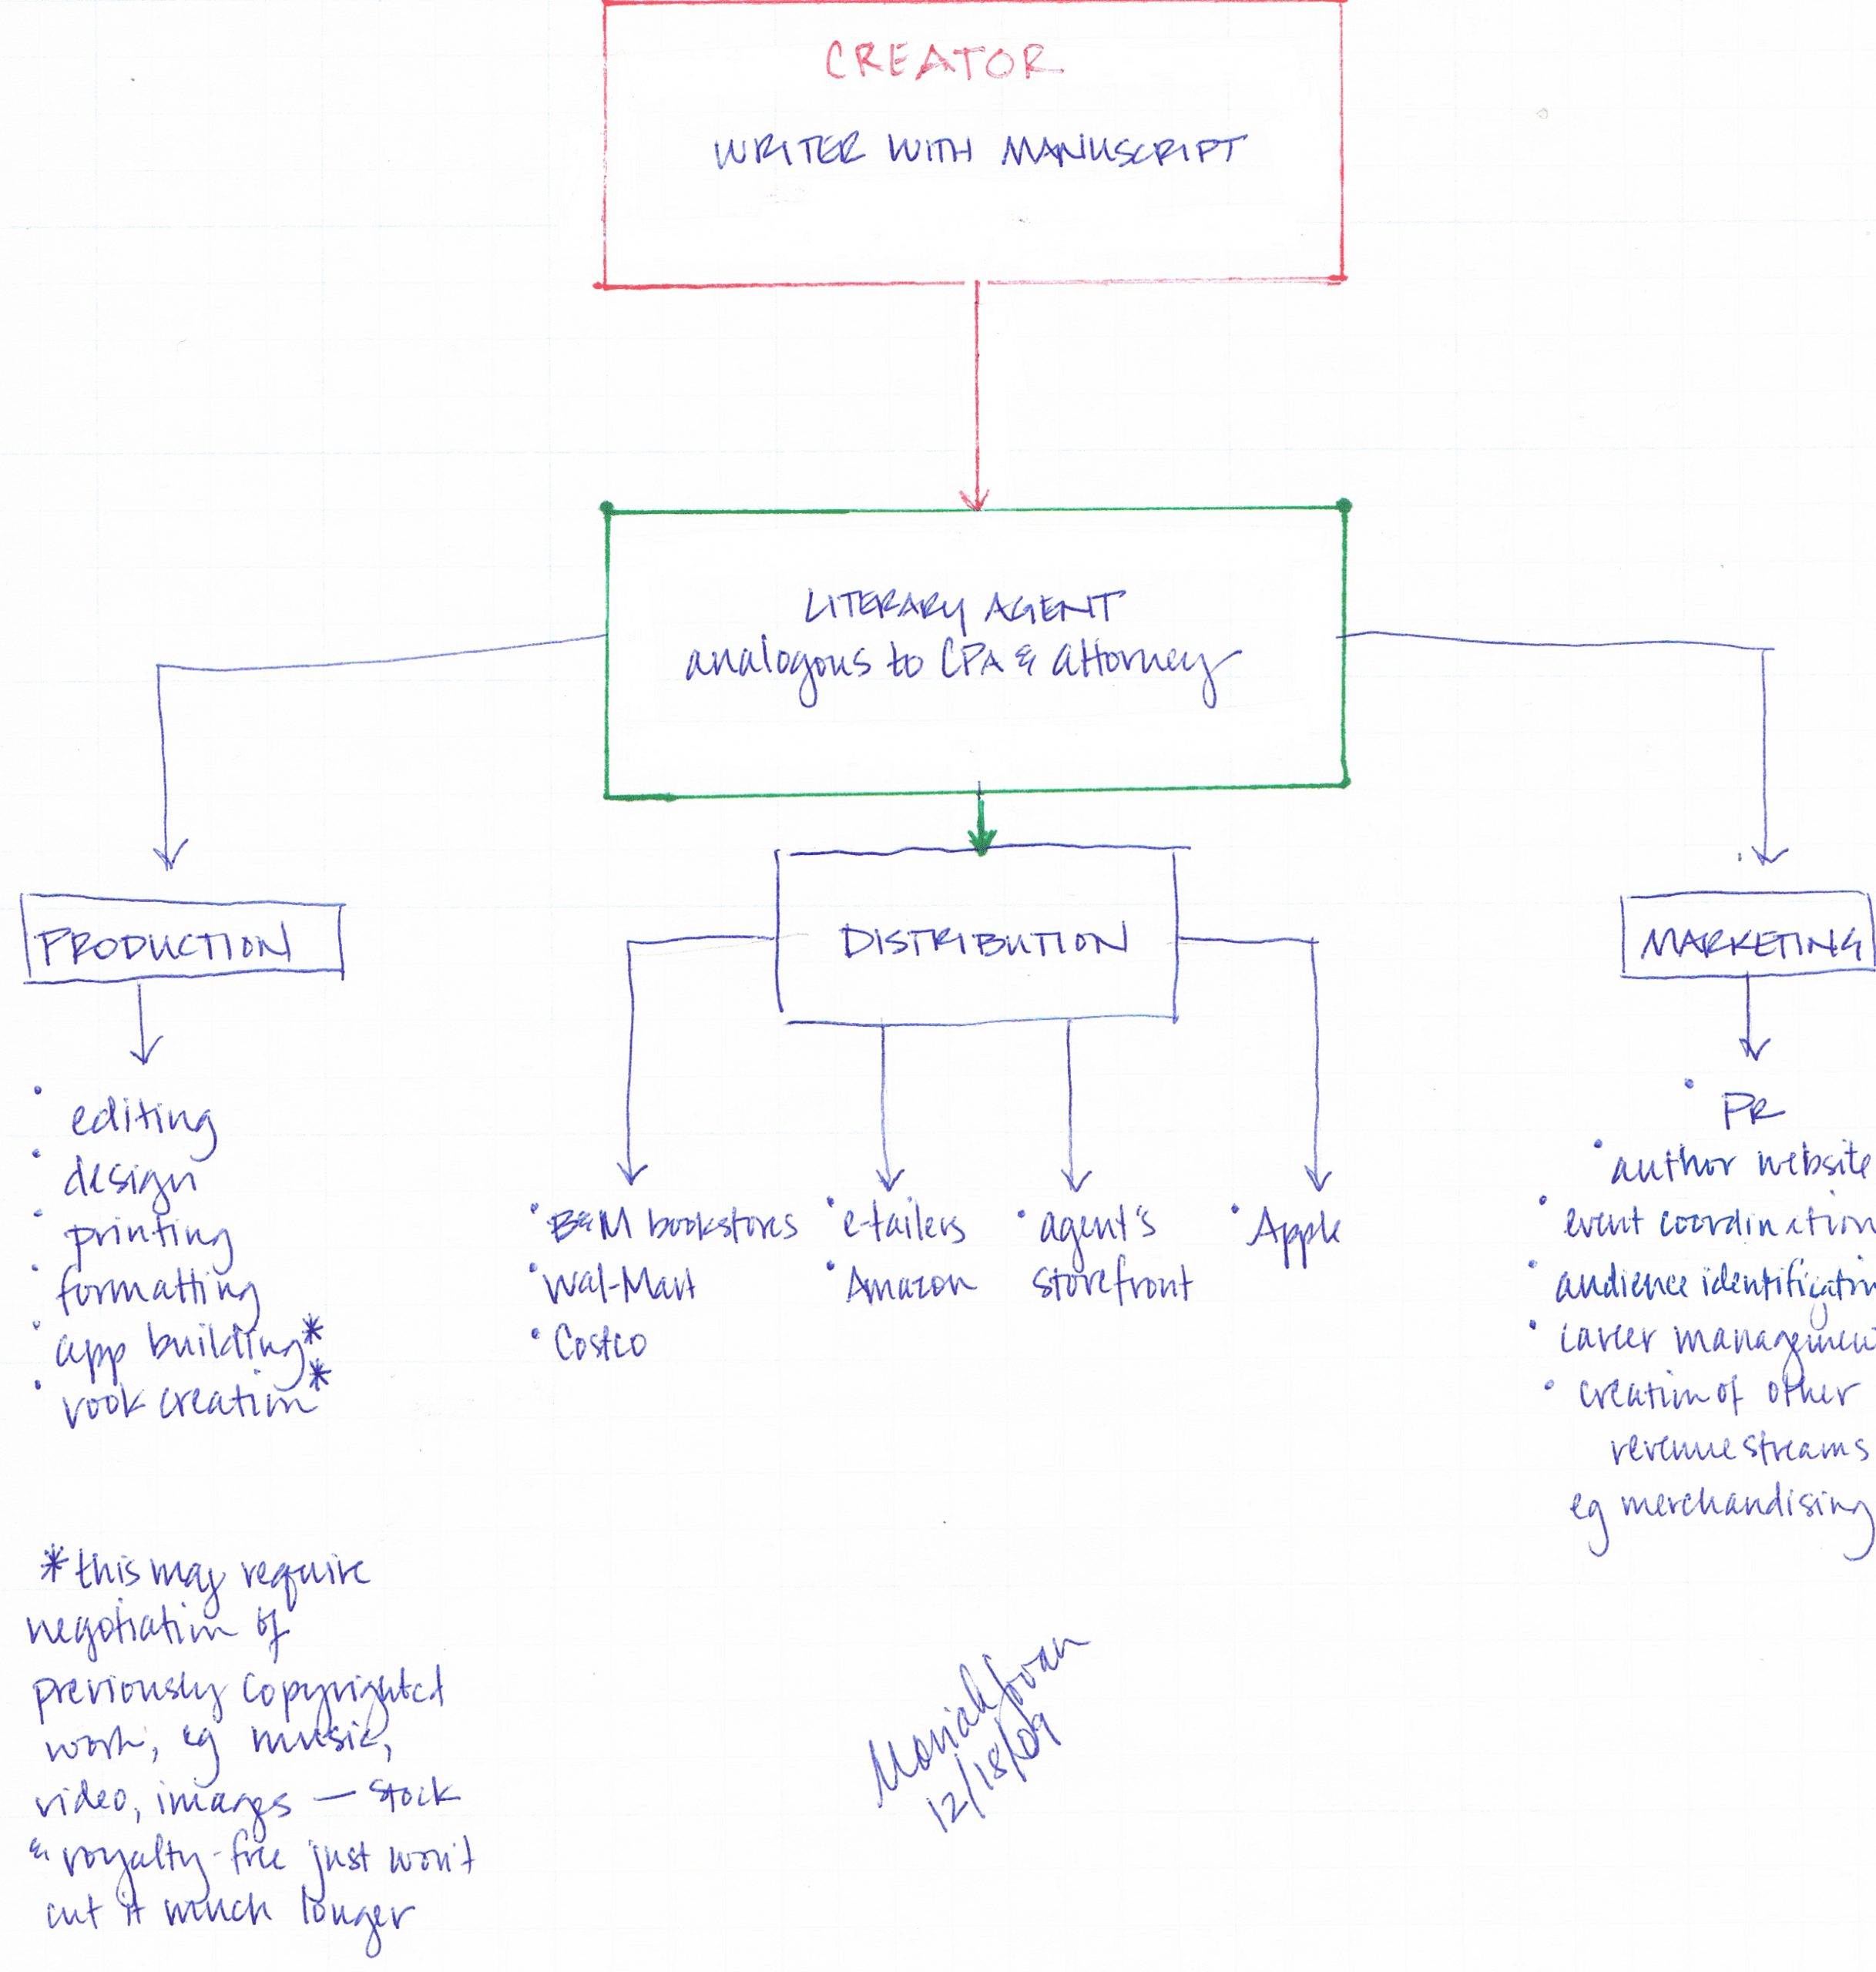 CREATOR
WRITER WITH MANUSCRIPT
LITERARY AGENT
analogous to CPA & attorney
PRODUCTION
• editing
• design
• printing
• formatting
• app building*
• vook creation*
DISTRIBUTION
• B&M bookstores
• Wal-Mart
• Costco
• e-tailers
• Amazon
• agent's
storefront
• Apple
MARKETING
• PR
• author website
• event coordination
• audience identificatin
• career managemen
• creation of other
revenue streams
eg merchandising
*this may require
negotiation of
previously copyrighted
work, eg music,
video, images — stock
& royalty-free just won't
cut it much longer
Moriah Jovan
12/18/09